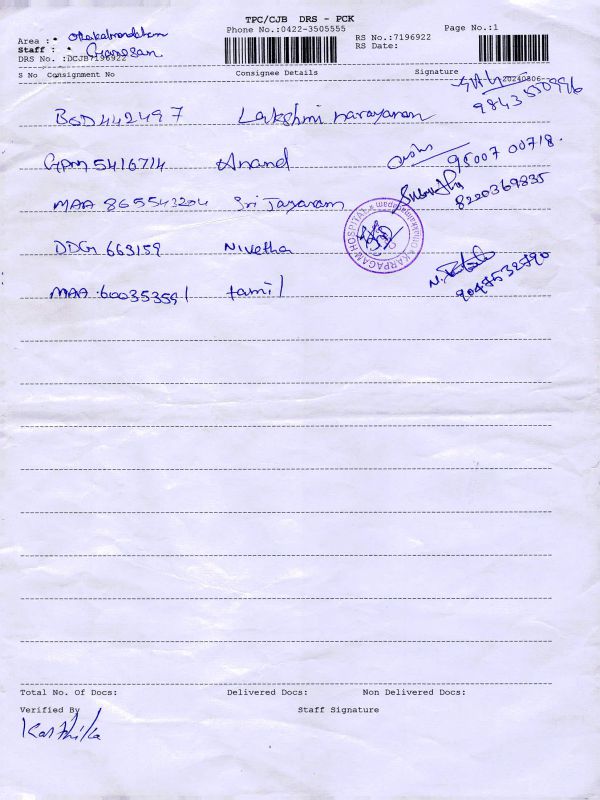 TPC/CJB DRS - PCK
Phone No.:0422-3505555
Page No.:1
Area :*
Staff : * Ganesan
DRS No. :DCJB7196922
RS No.:7196922
RS Date:
S No Consignment No Consignee Details Signature 20240806-
BSD442497 Lakshmi narayanan
GPM 5416714 Anand 95007 00718.
MAA 865543204 Sri Jayaram 8220369835
DDG 663159 Nivetha
HOSPITAL * KARPAGAM
MAA 600353591 tamil
Total No. Of Docs: Delivered Docs: Non Delivered Docs:
Verified By Staff Signature
Karthika